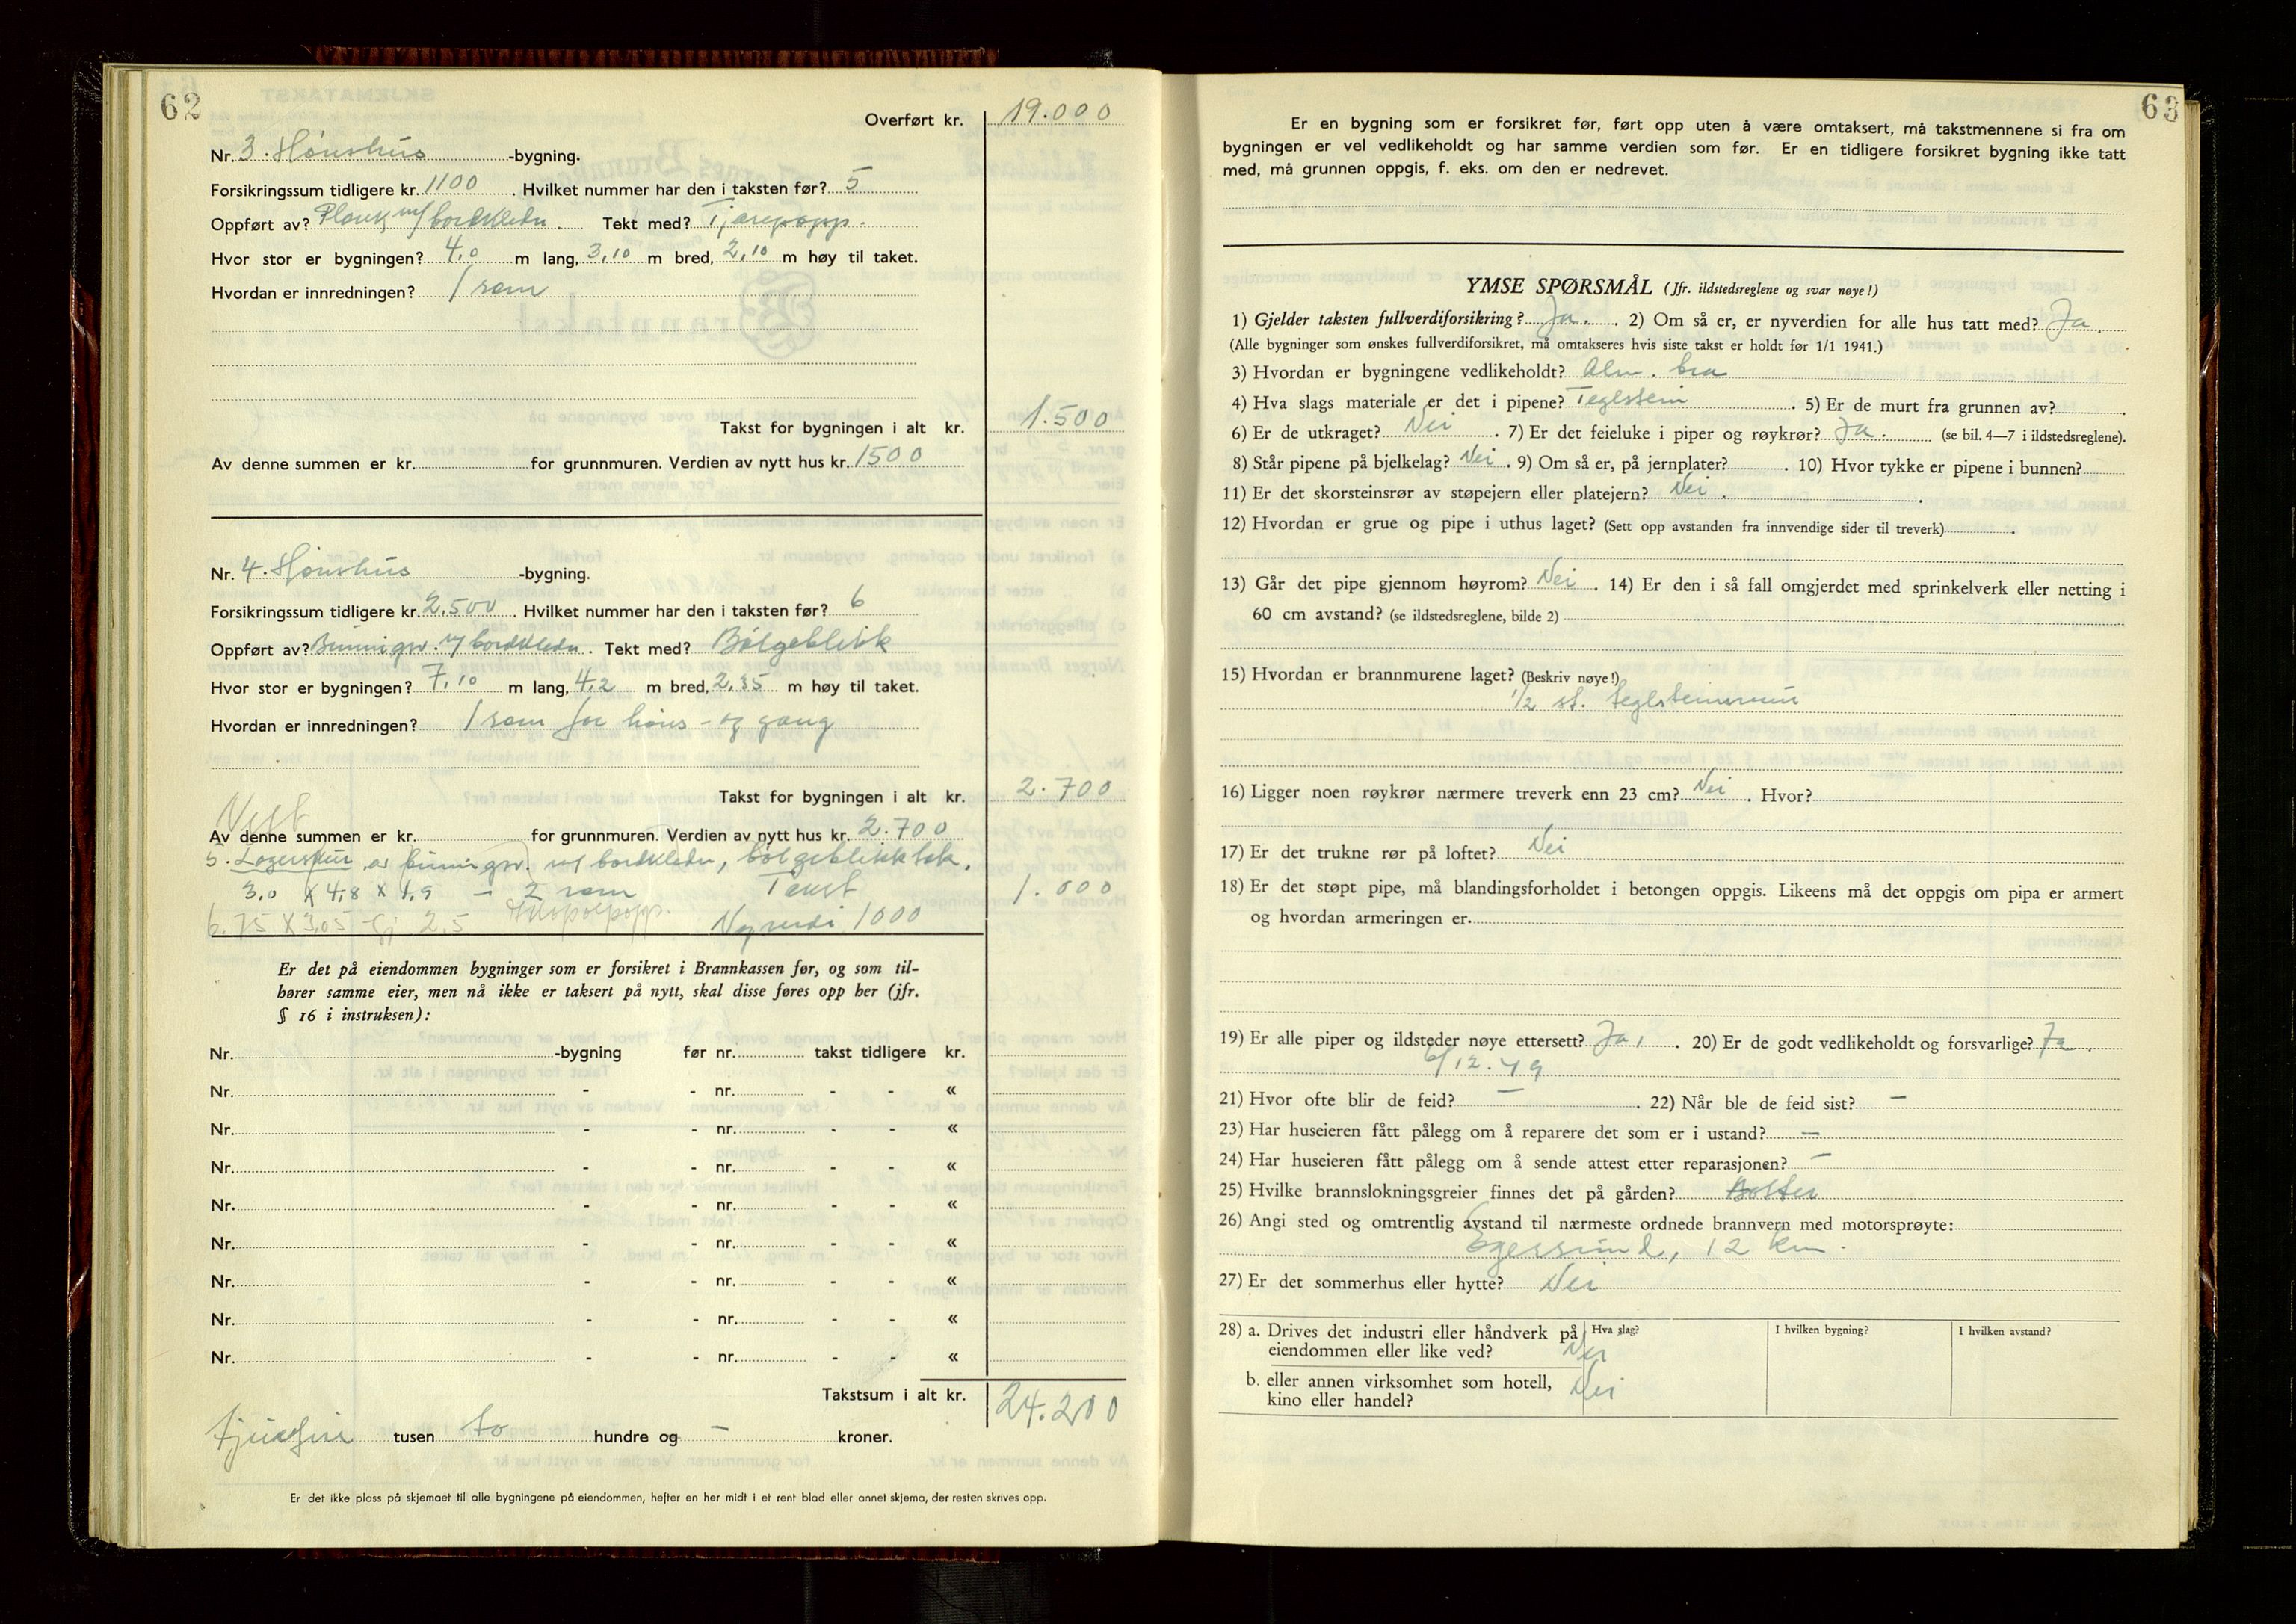 62
Overført kr. 19.000
Nr. 3. Hønshus -bygning.
Forsikringssum tidligere kr. 1100. Hvilket nummer har den i taksten før? 5
Oppført av? Plank m/ bordkledn. Tekt med? Tjærepapp.
Hvor stor er bygningen? 4,0 m lang, 3,10 m bred, 2,10 m høy til taket.
Hvordan er innredningen? 1 rom
Takst for bygningen i alt kr. 1.500
Av denne summen er kr. for grunnmuren. Verdien av nytt hus kr. 1500
Nr. 4. Hønshus -bygning.
Forsikringssum tidligere kr. 2.500. Hvilket nummer har den i taksten før? 6
Oppført av? Binningsv. m/ bordkledn. Tekt med? Bølgeblikk
Hvor stor er bygningen? 7,10 m lang, 4,2 m bred, 2,35 m høy til taket.
Hvordan er innredningen? 1 rom for høns - og gang
Takst for bygningen i alt kr. 2.700
Vest
Av denne summen er kr. for grunnmuren. Verdien av nytt hus kr. 2.700
5. Lagerskur av binningsv. m/ bordkledn, bølgeblikktak.
3,0 x 4,8 x 1,9 - 2 rom Takst 1.000
6. 75 x 3,05 - 2,5 Nyverdi 1000
Er det på eiendommen bygninger som er forsikret i Brannkassen før, og som til-
hører samme eier, men nå ikke er taksert på nytt, skal disse føres opp her (jfr.
§ 16 i instruksen):
Nr. -bygning før nr. takst tidligere kr.
Nr. - - nr. - - «
Nr. - - nr. - - «
Nr. - - nr. - - «
Nr. - - nr. - - «
Nr. - - nr. - - «
Nr. - - nr. - - «
Nr. - - nr. - - «
Nr. - - nr. - - «
Takstsum i alt kr. 24.200
tjuefire tusen to hundre og - kroner.
Er det ikke plass på skjemaet til alle bygningene på eiendommen, hefter en her midt i et rent blad eller annet skjema, der resten skrives opp.
63
Er en bygning som er forsikret før, ført opp uten å være omtaksert, må takstmennene si fra om
bygningen er vel vedlikeholdt og har samme verdien som før. Er en tidligere forsikret bygning ikke tatt
med, må grunnen oppgis, f. eks. om den er nedrevet.
YMSE SPØRSMÅL (Jfr. ildstedsreglene og svar nøye!)
1) Gjelder taksten fullverdiforsikring? Ja. 2) Om så er, er nyverdien for alle hus tatt med? Ja.
(Alle bygninger som ønskes fullverdiforsikret, må omtakseres hvis siste takst er holdt før 1/1 1941.)
3) Hvordan er bygningene vedlikeholdt? Alm. bra
4) Hva slags materiale er det i pipene? Teglstein. 5) Er de murt fra grunnen av?
6) Er de utkraget? Nei. 7) Er det feieluke i piper og røykrør? Ja. (se bil. 4—7 i ildstedsreglene).
8) Står pipene på bjelkelag? Nei. 9) Om så er, på jernplater? . 10) Hvor tykke er pipene i bunnen?
11) Er det skorsteinsrør av støpejern eller platejern? Nei.
12) Hvordan er grue og pipe i uthus laget? (Sett opp avstanden fra innvendige sider til treverk) .
13) Går det pipe gjennom høyrom? Nei. 14) Er den i så fall omgjerdet med sprinkelverk eller netting i
60 cm avstand? (se ildstedsreglene, bilde 2)
15) Hvordan er brannmurene laget? (Beskriv nøye!)
1/2 st. teglsteinsmur
16) Ligger noen røykrør nærmere treverk enn 23 cm? Nei. Hvor?
17) Er det trukne rør på loftet? Nei
18) Er det støpt pipe, må blandingsforholdet i betongen oppgis. Likeens må det oppgis om pipa er armert
og hvordan armeringen er.
19) Er alle piper og ildsteder nøye ettersett? Ja, . 20) Er de godt vedlikeholdt og forsvarlige? Ja.
6/12.49
21) Hvor ofte blir de feid? - . 22) Når ble de feid sist? -
23) Har huseieren fått pålegg om å reparere det som er i ustand? -
24) Har huseieren fått pålegg om å sende attest etter reparasjonen? -
25) Hvilke brannslokningsgreier finnes det på gården? Bøtter
26) Angi sted og omtrentlig avstand til nærmeste ordnede brannvern med motorsprøyte:
Egersund, 12 km.
27) Er det sommerhus eller hytte? Nei
28) a. Drives det industri eller håndverk på Hva slag? I hvilken bygning? I hvilken avstand?
eiendommen eller like ved? Nei
b. eller annen virksomhet som hotell, Nei
kino eller handel?